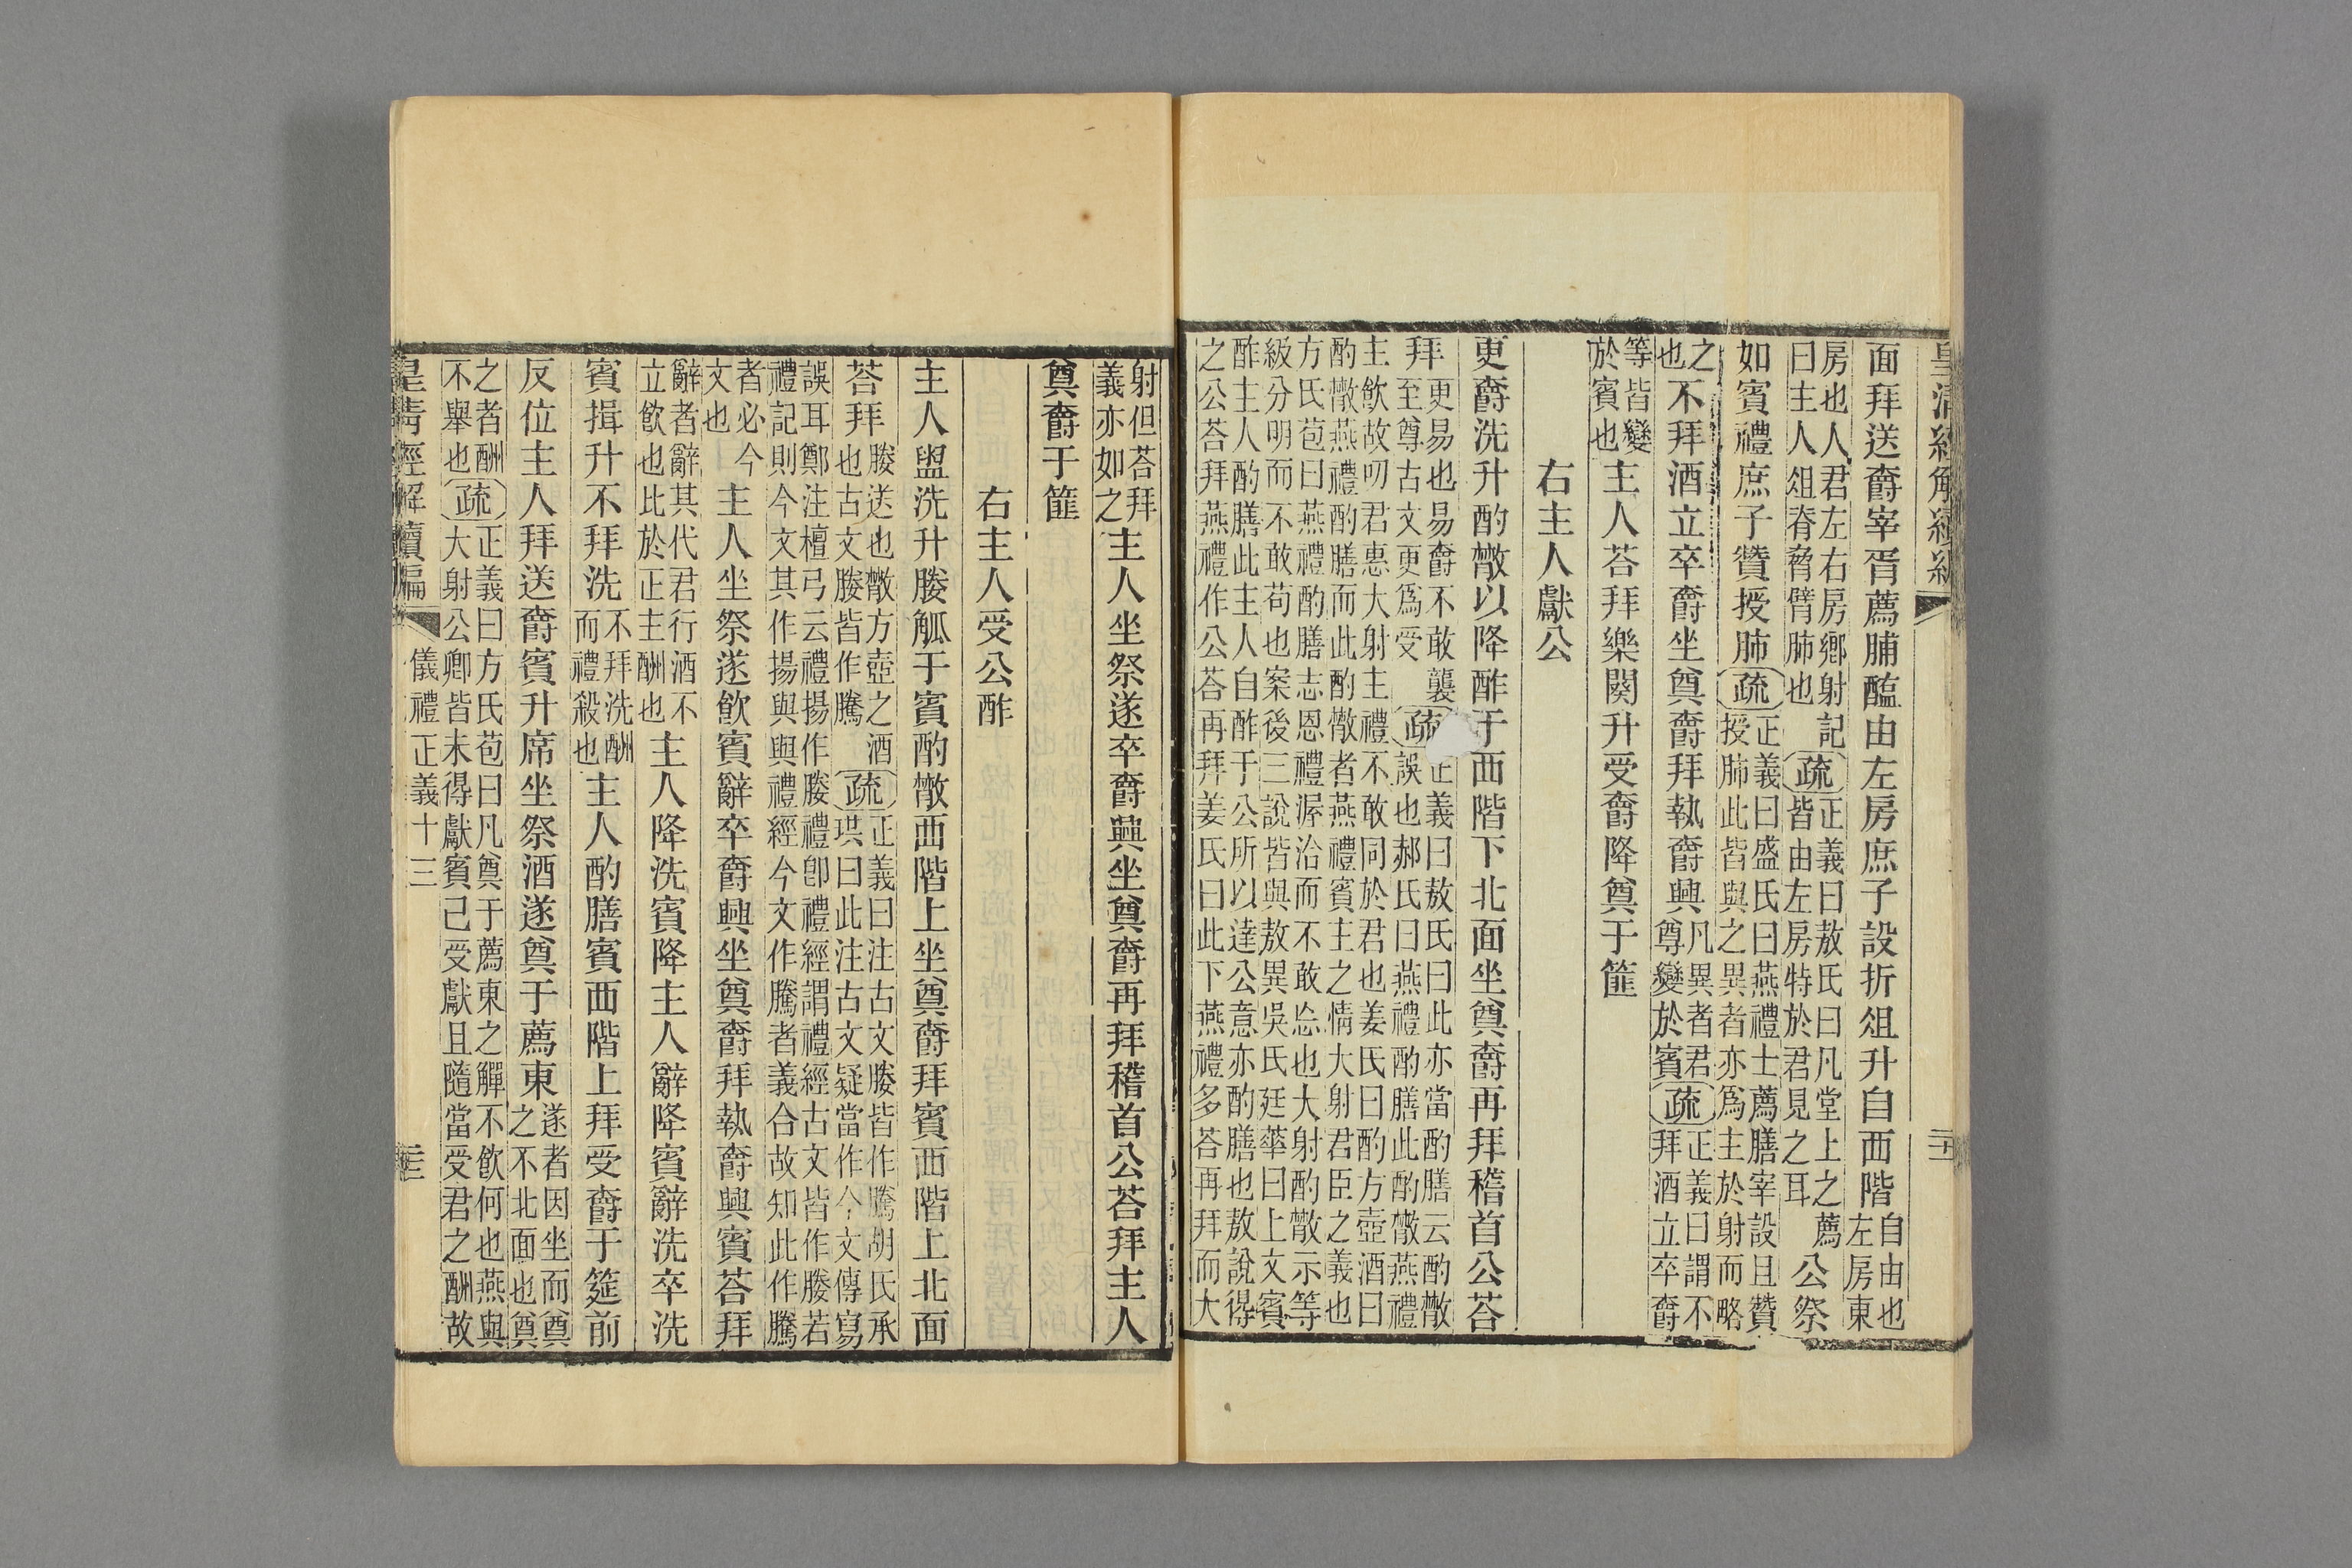 面拜送爵宰胥薦脯醢由左房庶子設折俎升自西階自由也左房東
房也人君左右房鄉射記曰主人俎脊脅臂肺也疏正義曰敖氏曰凡堂上之薦皆由左房特於君見之耳公祭
如賓禮庶子贊授肺疏正義曰盛氏曰燕禮士薦膳宰設且贊授肺此皆與之異者亦爲主於射而略
之也不拜酒立卒爵坐奠爵拜執爵興凡異者君尊變於賓疏正義曰謂不拜酒立卒爵
等皆變於賓也主人荅拜樂闋升受爵降奠于篚
右主人獻公
更爵洗升酌散以降酢于西階下北面坐奠爵再拜稽首公荅
拜更易也易爵不敢襲至尊古文更爲受疏正義曰敖氏曰此亦當酌膳云酌散誤也郝氏曰燕禮酌膳此酌散燕禮
主飲故叨君惠大射主禮不敢同於君也姜氏曰酌方壺酒曰酌散燕禮酌膳而此酌散者燕禮賓主之情大射君臣之義也
方氏苞曰燕禮酌膳志恩禮渥洽而不敢忘也大射酌散示等級分明而不敢苟也案後三說皆與敖異吳氏廷華曰上文賓
酢主人酌膳此主人自酢于公所以達公意亦酌膳也敖說得之公荅拜燕禮作公荅再拜姜氏曰此下燕禮多荅再拜而大
射但荅拜義亦如之主人坐祭遂卒爵興坐奠爵再拜稽首公荅拜主人
奠爵于篚
右主人受公酢
主人盥洗升媵觚于賓酌散西階上坐奠爵拜賓西階上北面
荅拜媵送也散方壺之酒也古文媵皆作騰疏正義曰注古文媵皆作騰胡氏承珙曰此注古文疑當作今文傳寫
誤耳鄭注檀弓云禮揚作媵禮卽禮經謂禮經古文皆作媵若禮記則今文其作揚與與禮經今文作騰者義合故知此作騰
者必今文也主人坐祭遂飮賓辭卒爵興坐奠爵拜執爵興賓荅拜
辭者辭其代君行酒不立飲也此於正主酬也主人降洗賓降主人辭降賓辭洗卒洗
賓揖升不拜洗不拜洗酬而禮殺也主人酌膳賓西階上拜受爵于筵前
反位主人拜送爵賓升席坐祭酒遂奠于薦東遂者因坐而奠之不北面也奠
之者酬不舉也疏正義曰方氏苞曰凡奠于薦東之觶不飲何也燕與大射公卿皆未得獻賓己受獻且隨當受君之酬故
儀禮正義十三